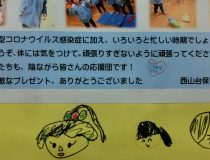 型コロナウイルス感染症に加え、いろいろと忙しい時期でしょ
うぞ、体には気をつけて、頑張りすぎないように頑張ってくださ
たちも、陰ながら皆さんの応援団です！
敵なプレゼント、ありがとうございました
西山台保